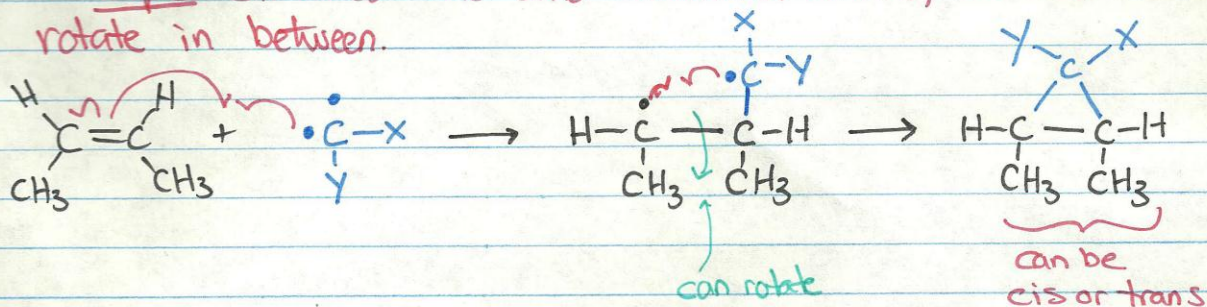 rotate in between.
X
Y X
H H C-Y C
C=C + C-X → H-C-C-H → H-C-C-H
CH3 CH3 Y CH3 CH3 CH3 CH3
can rotate
can be
cis or trans